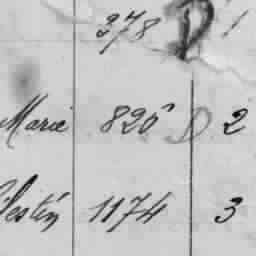 378 D 1
Marie 825 D 2
lestin 1174 3